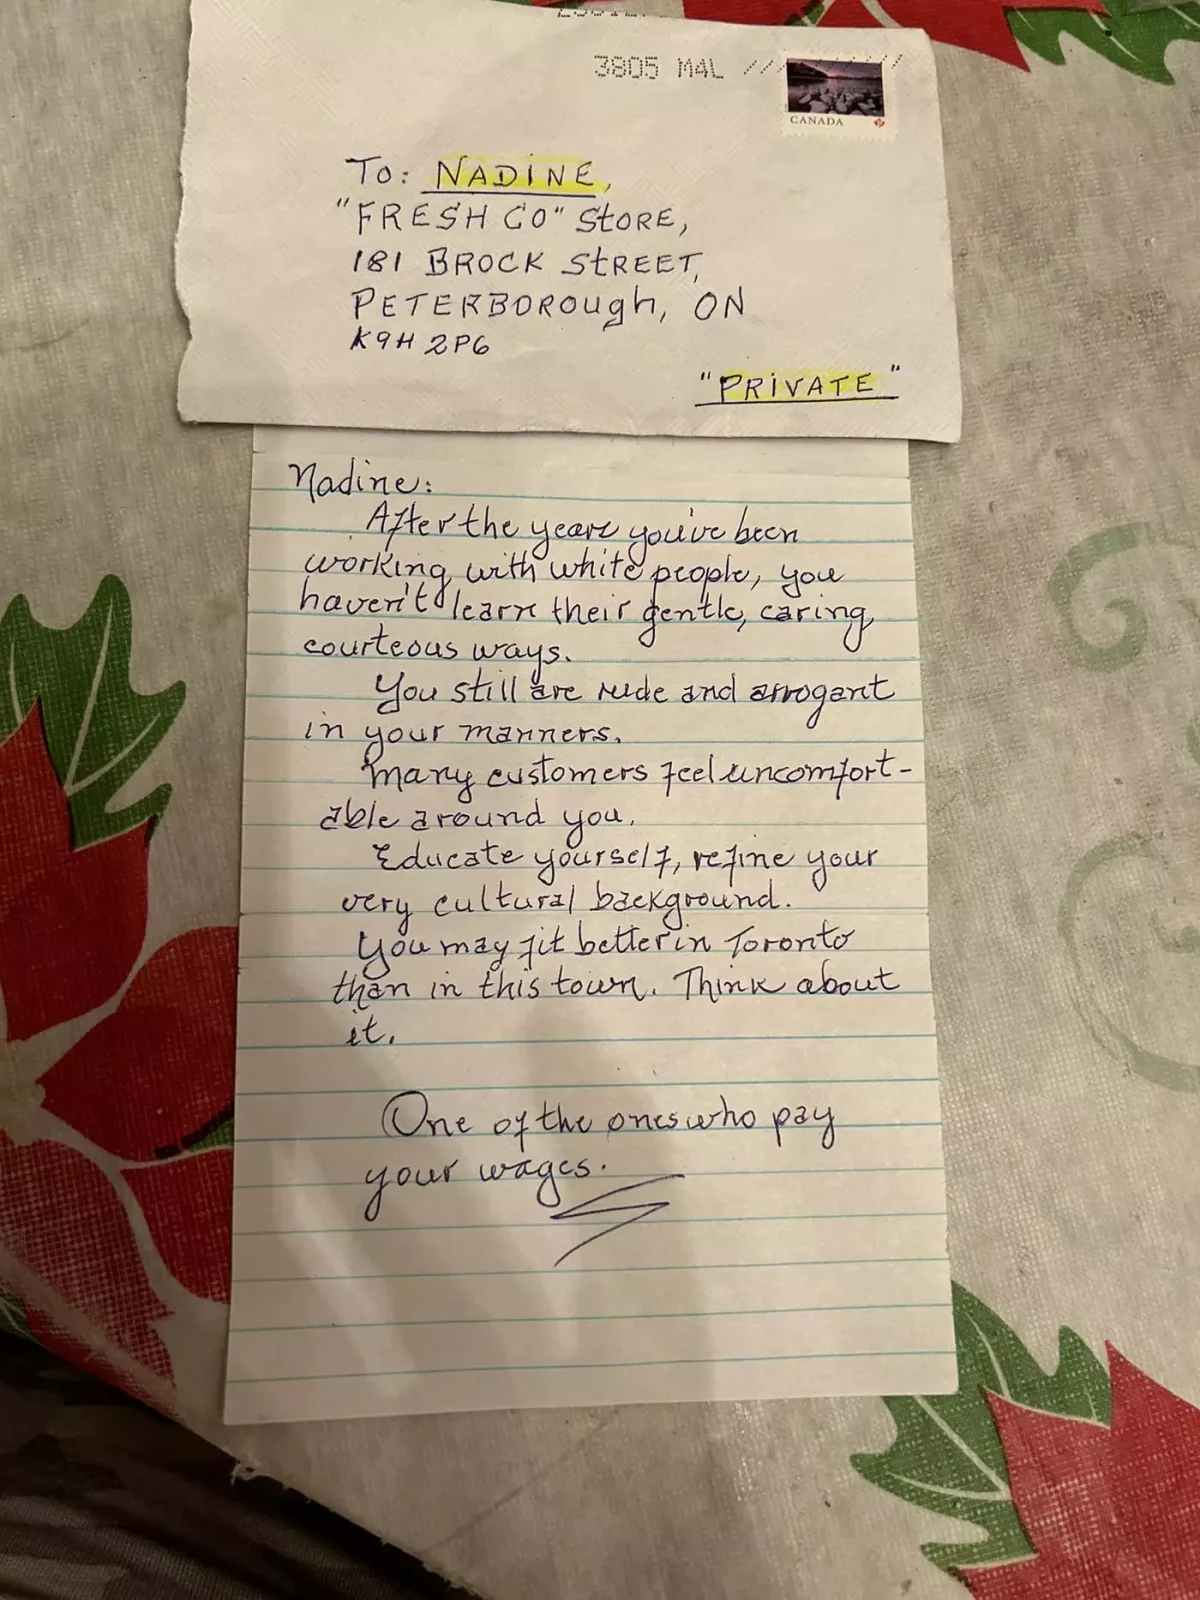 3805 M4L
CANADA
P
To: NADINE,
"FRESH CO" StORE,
181 BROCK StREET,
PETERBOROugh, ON
K9H 2P6
"PRIVATE"
Nadine:
After the years you've been
working with white people, you
haven't learn their gentle, caring,
courteous ways.
You still are rude and arrogant
in your manners.
Many customers feel uncomfort-
able around you.
Educate yourself, refine your
very cultural background.
You may fit better in Toronto
than in this town. Think about
it.
One of the ones who pay
your wages.